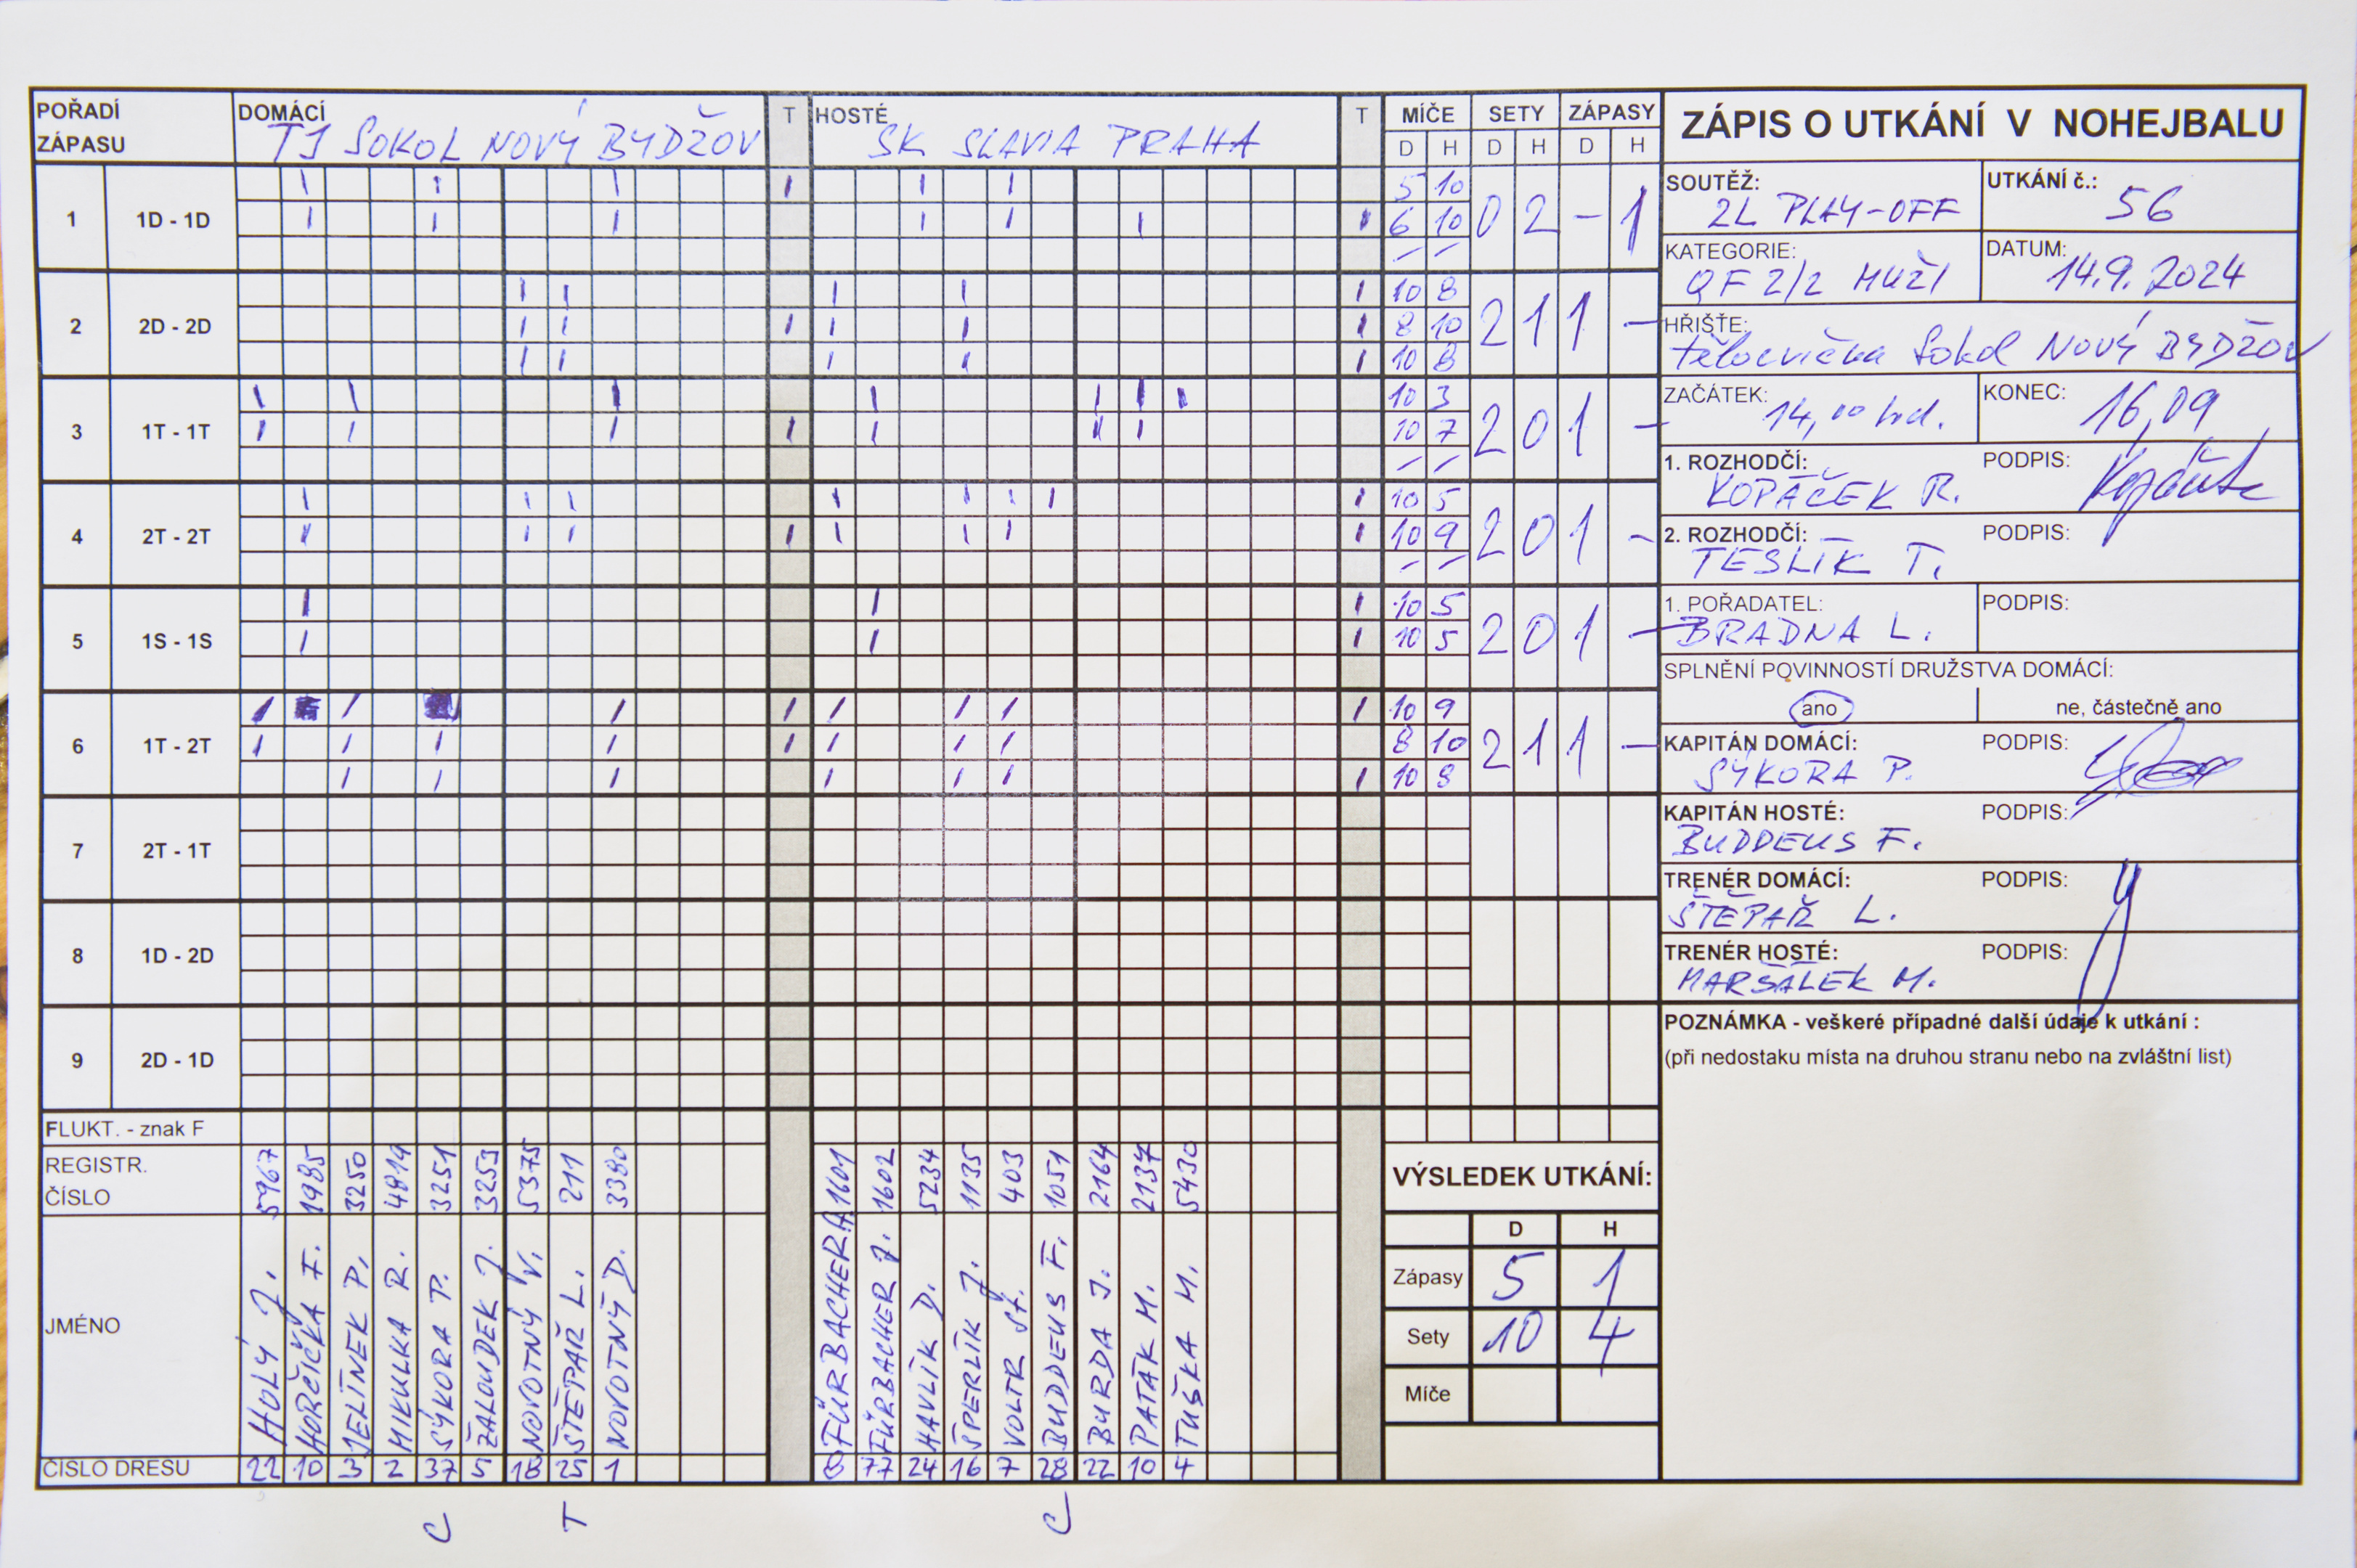 POŘADÍ ZÁPASU
DOMÁCÍ TJ SOKOL NOVÝ BYDŽOV
T
HOSTÉ SK SLAVIA PRAHA
T
MÍČE SETY ZÁPASY
D H D H D H
1 1D - 1D
5 10
6 10
0 2 - 1
2 2D - 2D
10 8
8 10
10 8
2 1 1 -
3 1T - 1T
10 3
10 7
2 0 1 -
4 2T - 2T
10 5
10 9
2 0 1 -
5 1S - 1S
10 5
10 5
2 0 1 -
6 1T - 2T
10 9
8 10
10 8
2 1 1 -
7 2T - 1T
8 1D - 2D
9 2D - 1D
FLUKT. - znak F
REGISTR. ČÍSLO
5967 1985 3250 4819 3251 3253 5375 211 3380
1601 1602 5234 1135 403 1051 2164 2137 5430
JMÉNO
HOLÝ J.
HORČIČKA F.
JELÍNEK P.
MIKULKA R.
SÝKORA P.
ŽALOUDEK J.
NOVOTNÝ V.
ŠTĚPAŘ L.
NOVOTNÝ D.
FÜRBACHER A.
FÜRBACHER J.
HAVLÍK D.
ŠPERLÍK J.
VOLTR St.
BUDDEUS F.
BURDA J.
PATÁK M.
TUŠKA M.
ČÍSLO DRESU
22 10 3 2 37 5 18 25 1
8 77 24 16 7 28 22 10 4
C T C
VÝSLEDEK UTKÁNÍ:
D H
Zápasy 5 1
Sety 10 4
Míče
ZÁPIS O UTKÁNÍ V NOHEJBALU
SOUTĚŽ: 2L PLAY-OFF
UTKÁNÍ č.: 56
KATEGORIE: QF 2/2 MUŽI
DATUM: 14.9.2024
HŘIŠŤE: tělocvična Sokol NOVÝ BYDŽOV
ZAČÁTEK: 14,00 hod.
KONEC: 16,09
1. ROZHODČÍ: KOPÁČEK R.
PODPIS:
2. ROZHODČÍ: TESLÍK T.
PODPIS:
1. POŘADATEL: BRADNA L.
PODPIS:
SPLNĚNÍ POVINNOSTÍ DRUŽSTVA DOMÁCÍ:
ano
ne, částečně ano
KAPITÁN DOMÁCÍ: SÝKORA P.
PODPIS:
KAPITÁN HOSTÉ: BUDDEUS F.
PODPIS:
TRENÉR DOMÁCÍ: ŠTĚPAŘ L.
PODPIS:
TRENÉR HOSTÉ: MARŠÁLEK M.
PODPIS:
POZNÁMKA - veškeré případné další údaje k utkání :
(při nedostaku místa na druhou stranu nebo na zvláštní list)